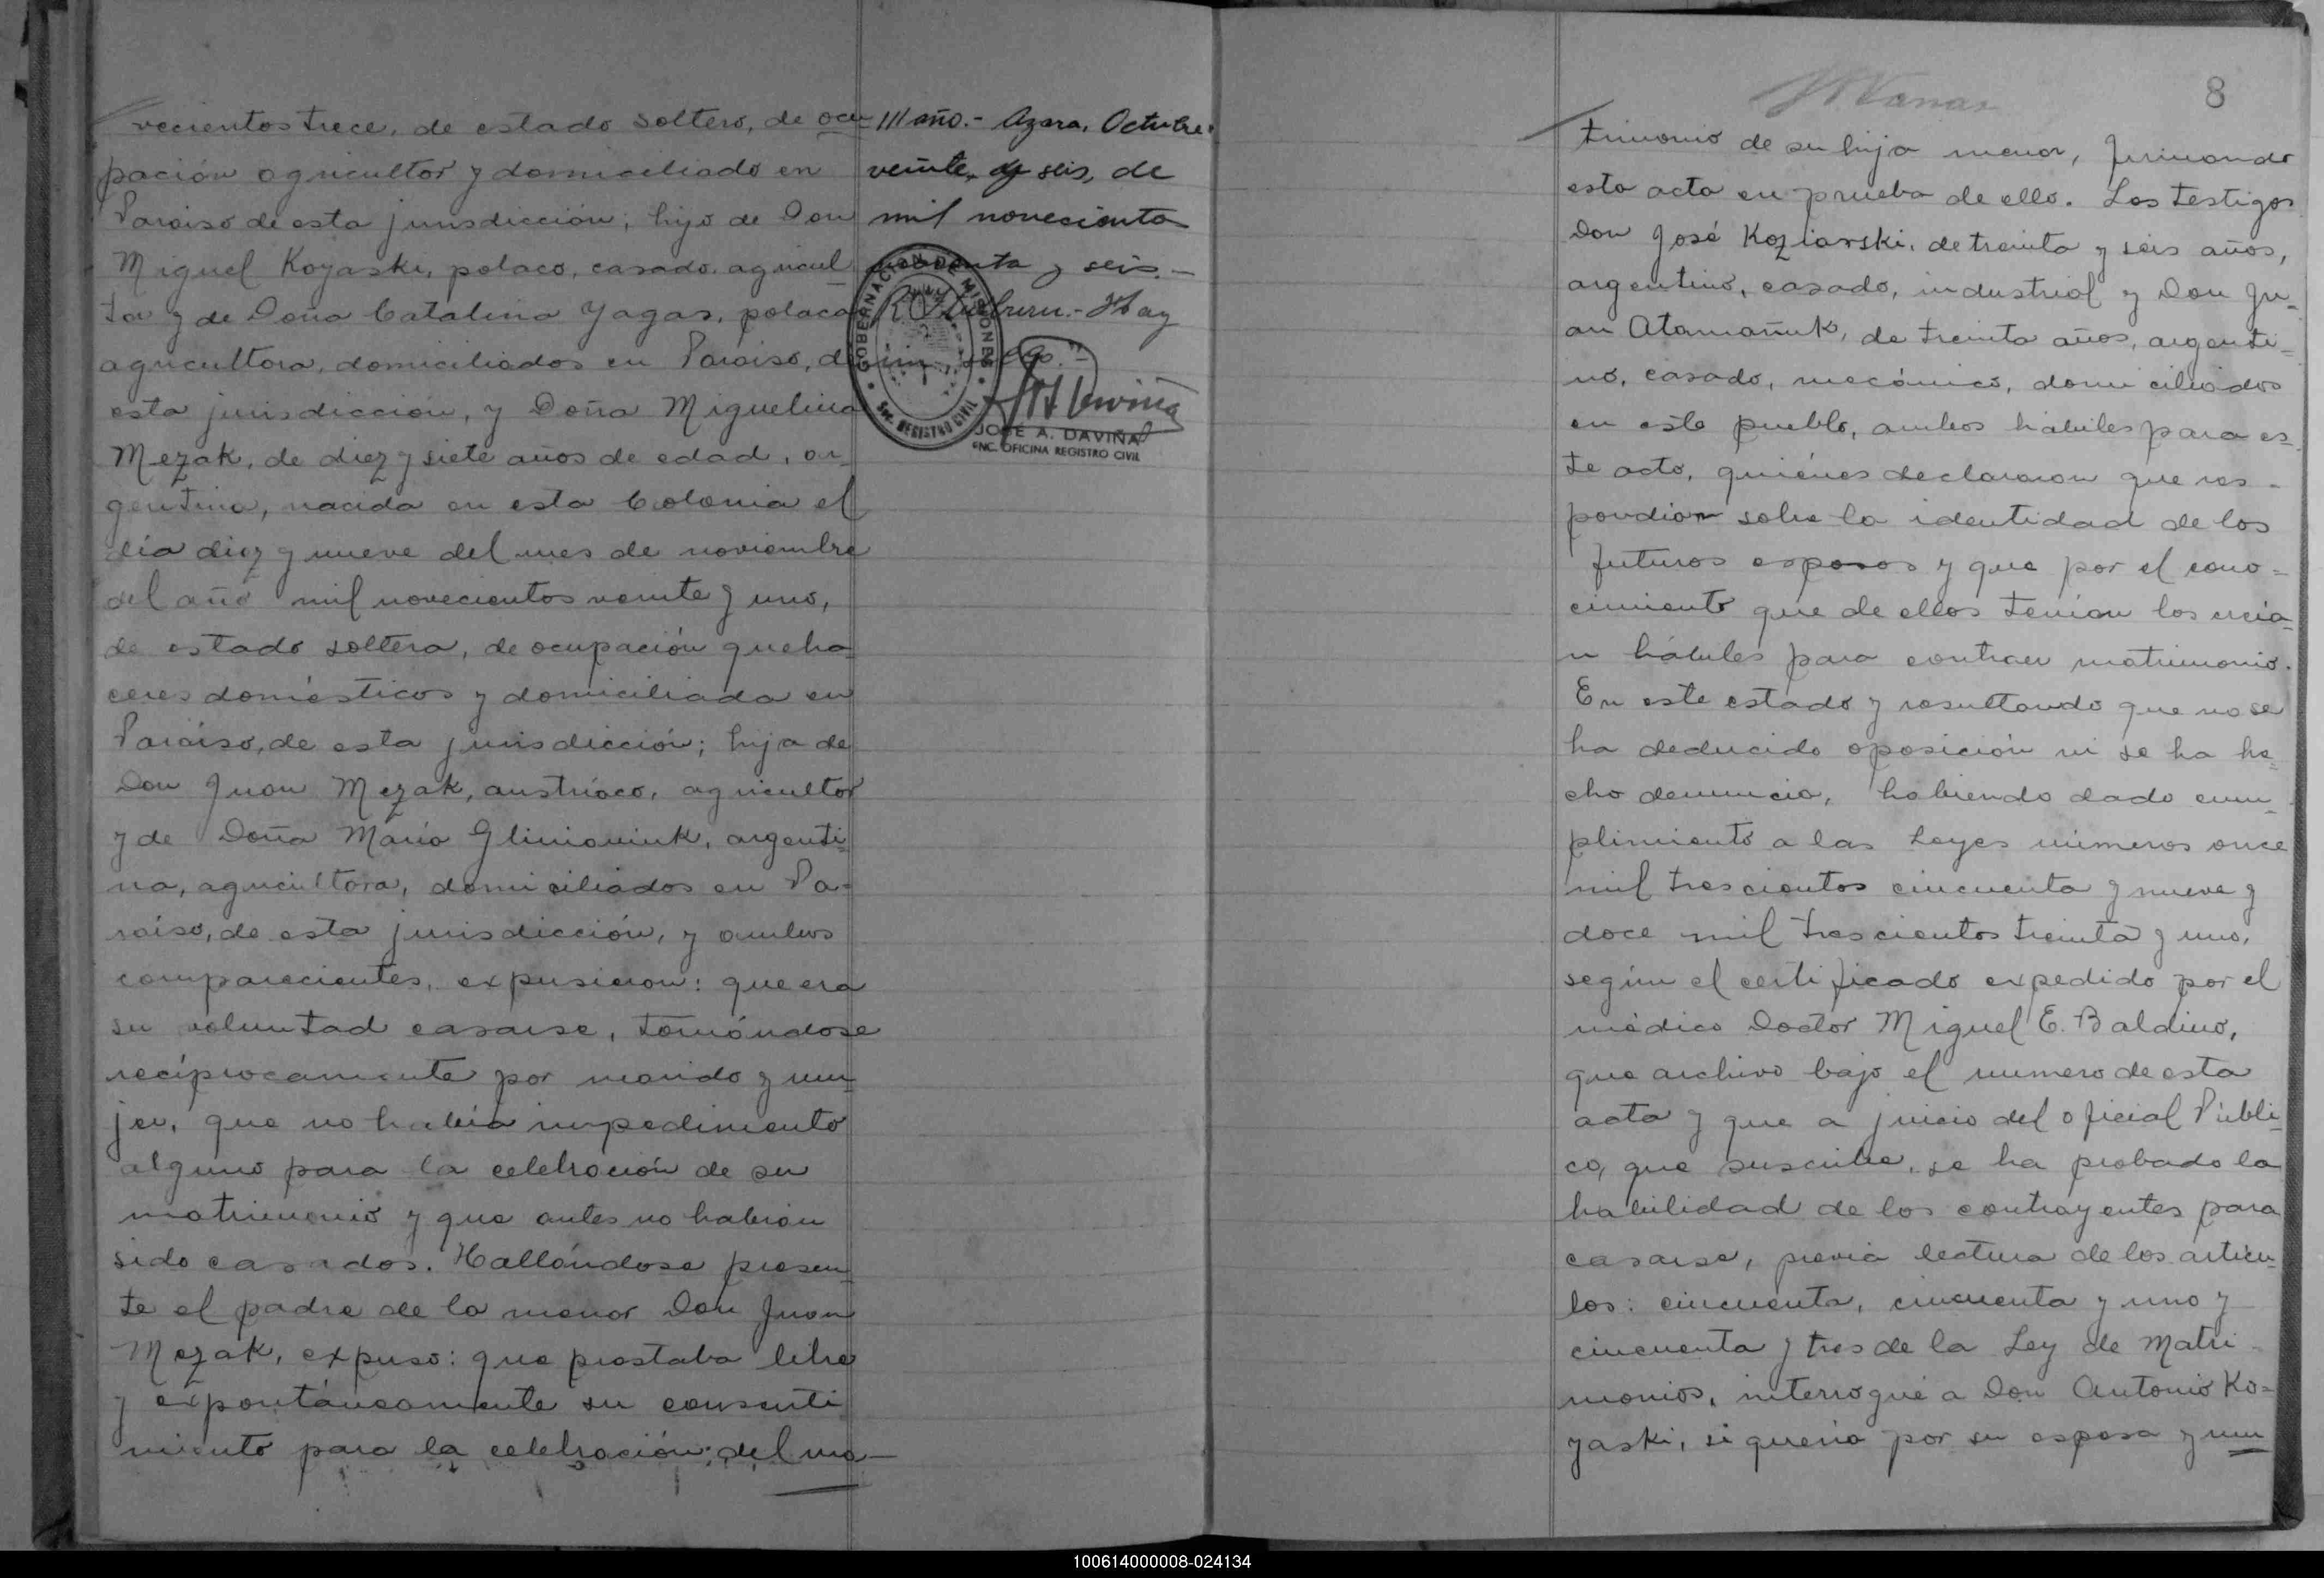 vecientos trece, de estado soltero, de ocu-
pación agricultor y domiciliado en
Paraiso de esta jurisdicción; hijo de Don
Miguel Koyaski, polaco, casado, agricul
tor y de Doña Catalina Yagas, polaca
agricultora, domiciliados en Paraiso, de
esta jurisdicción, y Doña Miguelina
Mezak, de diez y siete años de edad, ar-
gentina, nacida en esta Colonia el
día diez y nueve del mes de noviembre
del año mil novecientos veinte y uno,
de estado soltera, de ocupación queha-
ceres domésticos y domiciliada en
Paraiso, de esta jurisdicción; hija de
Don Juan Mezak, austríaco, agricultor
y de Doña María Gliniomiuk, argenti-
na, agricultora, domiciliados en Pa-
raiso, de esta jurisdicción, y ambos
comparecientes, expusieron: que era
su voluntad casarse, tomándose
recíprocamente por marido y mu-
jer, que no había impedimento
alguno para la celebración de su
matrimonio y que antes no habían
sido casados. Hallándose presen-
te el padre de la menor Don Juan
Mezak, expuso: que prestaba libre
y expontáneamente su consenti
miento para la celebración del ma-
111 año.- Azara, Octubre
veinte, y seis, de
mil novecientos
y seis.-
Hay
un
GOBERNACION DE MISIONES
Sec. REGISTRO CIVIL
JOSÉ A. DAVIÑA
ENC. OFICINA REGISTRO CIVIL
8
trimonio de su hija menor, firmando
esta acta en prueba de ello. Los testigos
Don José Koziarski, de treinta y seis años,
argentino, casado, industrial y Don Ju-
an Atamañuk, de treinta años, argenti-
no, casado, mecánico, domiciliados
en este pueblo, ambos hábiles para es-
te acto, quiénes declararon que res-
pondian sobre la identidad de los
futuros esposos y que por el cono-
cimiento que de ellos tenían los creía-
n hábiles para contraer matrimonio.
En este estado y resultando que no se
ha deducido oposición ni se ha he-
cho denuncia, habiendo dado cum-
plimiento a las Leyes números once
mil trescientos cincuenta y nueve y
doce mil trescientos treinta y uno,
según el certificado expedido por el
médico Doctor Miguel E. Baldino,
que archivo bajo el numero de esta
acta y que a juicio del oficial Públi-
co, que suscribe, se ha probado la
habilidad de los contrayentes para
casarse, previa lectura de los artícu-
los: cincuenta, cincuenta y uno y
cincuenta y tres de la Ley de Matri-
monios, interrogué a Don Antonio Ko-
yaski, si quería por su esposa y mu
100614000008-024134